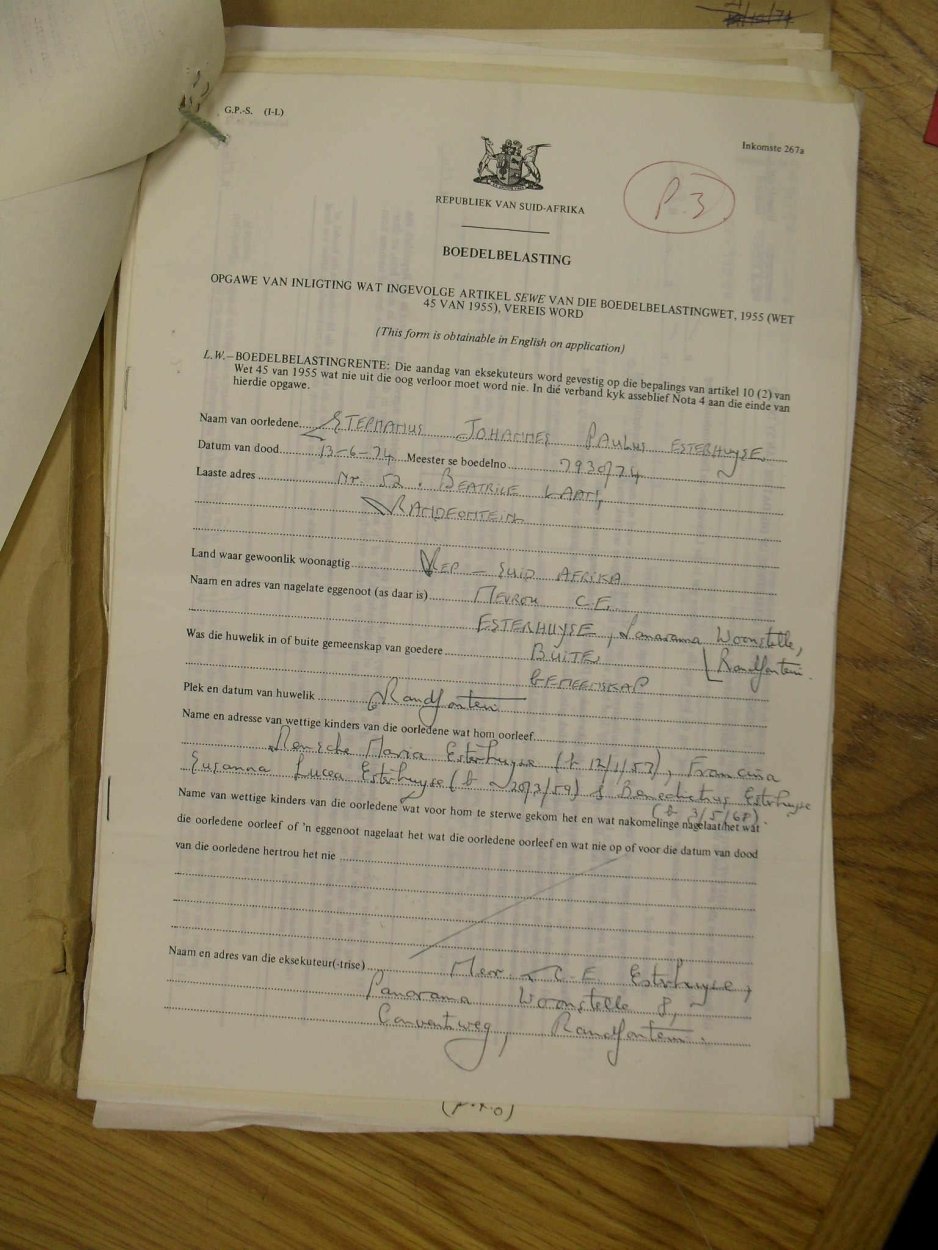 G.P.-S. (I-L)
Inkomste 267a
REPUBLIEK VAN SUID-AFRIKA
P.3
BOEDELBELASTING
OPGAWE VAN INLIGTING WAT INGEVOLGE ARTIKEL SEWE VAN DIE BOEDELBELASTINGWET, 1955 (WET
45 VAN 1955), VEREIS WORD
(This form is obtainable in English on application)
L.W.—BOEDELBELASTINGRENTE: Die aandag van eksekuteurs word gevestig op die bepalings van artikel 10 (2) van
Wet 45 van 1955 wat nie uit die oog verloor moet word nie. In dié verband kyk asseblief Nota 4 aan die einde van
hierdie opgawe.
Naam van oorledene STEPHANUS JOHANNES PAULUS ESTERHUYSE
Datum van dood 13-6-74 Meester se boedelno. 7930/74
Laaste adres Nr. 52, BEATRICE LAAN,
RANDFONTEIN
Land waar gewoonlik woonagtig REP - SUID AFRIKA
Naam en adres van nagelate eggenoot (as daar is) MEVROU C.E.
ESTERHUYSE, Panorama Woonstelle,
Randfontein.
Was die huwelik in of buite gemeenskap van goedere BUITE
GEMEENSKAP
Plek en datum van huwelik Randfontein
Name en adresse van wettige kinders van die oorledene wat hom oorleef
Maria Esterhuyse (b 12/1/57), Francina
Susanna Lucea Esterhuyse (b 20/3/59) & Benedictus Esterhuyse
(b 3/5/68).
Name van wettige kinders van die oorledene wat voor hom te sterwe gekom het en wat nakomelinge nagelaat het wat
die oorledene oorleef of 'n eggenoot nagelaat het wat die oorledene oorleef en wat nie op of voor die datum van dood
van die oorledene hertrou het nie
Naam en adres van die eksekuteur(-trise) Mev C.E Esterhuyse,
Panorama Woonstelle 8,
Conventweg, Randfontein.
(P.T.O)